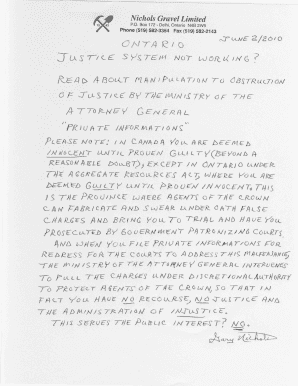 Nichols Gravel Limited
P.O. Box 172 - Delhi, Ontario N4B 2W9
Phone (519) 582-3354 Fax (519) 582-2143
JUNE 2/2010
ONTARIO
JUSTICE SYSTEM NOT WORKING?
READ ABOUT MANIPULATION TO OBSTRUCTION
OF JUSTICE BY THE MINISTRY OF THE
ATTORNEY GENERAL
"PRIVATE INFORMATIONS"
PLEASE NOTE: IN CANADA YOU ARE DEEMED
INNOCENT UNTIL PROVEN GUILTY (BEYOND A
REASONABLE DOUBT), EXCEPT IN ONTARIO UNDER
THE AGGREGATE RESOURCES ACT, WHERE YOU ARE
DEEMED GUILTY UNTIL PROVEN INNOCENT, THIS
IS THE PROVINCE WHERE AGENTS OF THE CROWN
CAN FABRICATE AND SWEAR UNDER OATH FALSE
CHARGES AND BRING YOU TO TRIAL AND HAVE YOU
PROSECUTED BY GOVERNMENT PATRONIZING COURTS
AND WHEN YOU FILE PRIVATE INFORMATIONS FOR
REDRESS FOR THE COURTS TO ADDRESS THIS MALFEASANCE,
THE MINISTRY OF THE ATTORNEY GENERAL INTERVENES
TO PULL THE CHARGES UNDER DISCRETIONAL AUTHORITY
TO PROTECT AGENTS OF THE CROWN, SO THAT IN
FACT YOU HAVE NO RECOURSE, NO JUSTICE AND
THE ADMINISTRATION OF INJUSTICE.
THIS SERVES THE PUBLIC INTEREST? NO.
Gary Nichols